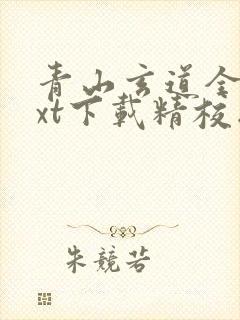 青山玄道全
xt下载精校
朱競若